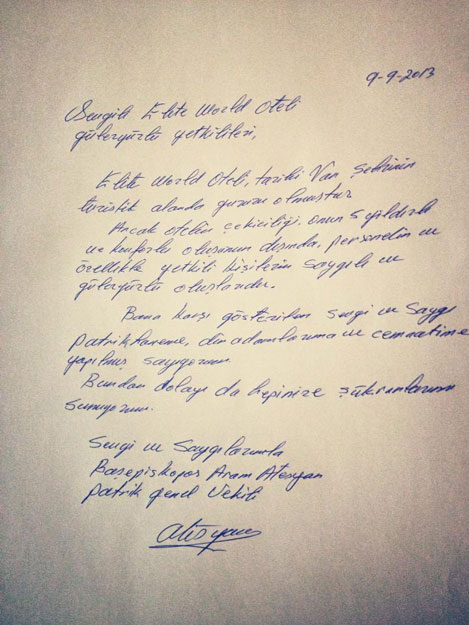 9-9-2013
Sevgili Elite World Oteli
güleryüzlü yetkilileri,
Elite World Oteli, tarihi Van Şehrinin
turistik alanda gururu olmuştur
Ancak otelin çekiciliği, onun 5 yıldızlı
ve konforlu oluşunun dışında, personelin ve
özellikle yetkili kişilerin saygılı ve
güleryüzlü oluşlarıdır.
Bana karşı gösterilen sevgi ve Saygı
patrikhaneme, din adamlarıma ve cemaatime
yapılmış sayıyorum
Bundan dolayı da hepinize şükranlarımı
sunuyorum.
Sevgi ve Saygılarımla
Başepiskopos Aram Ateşyan
Patrik Genel Vekili